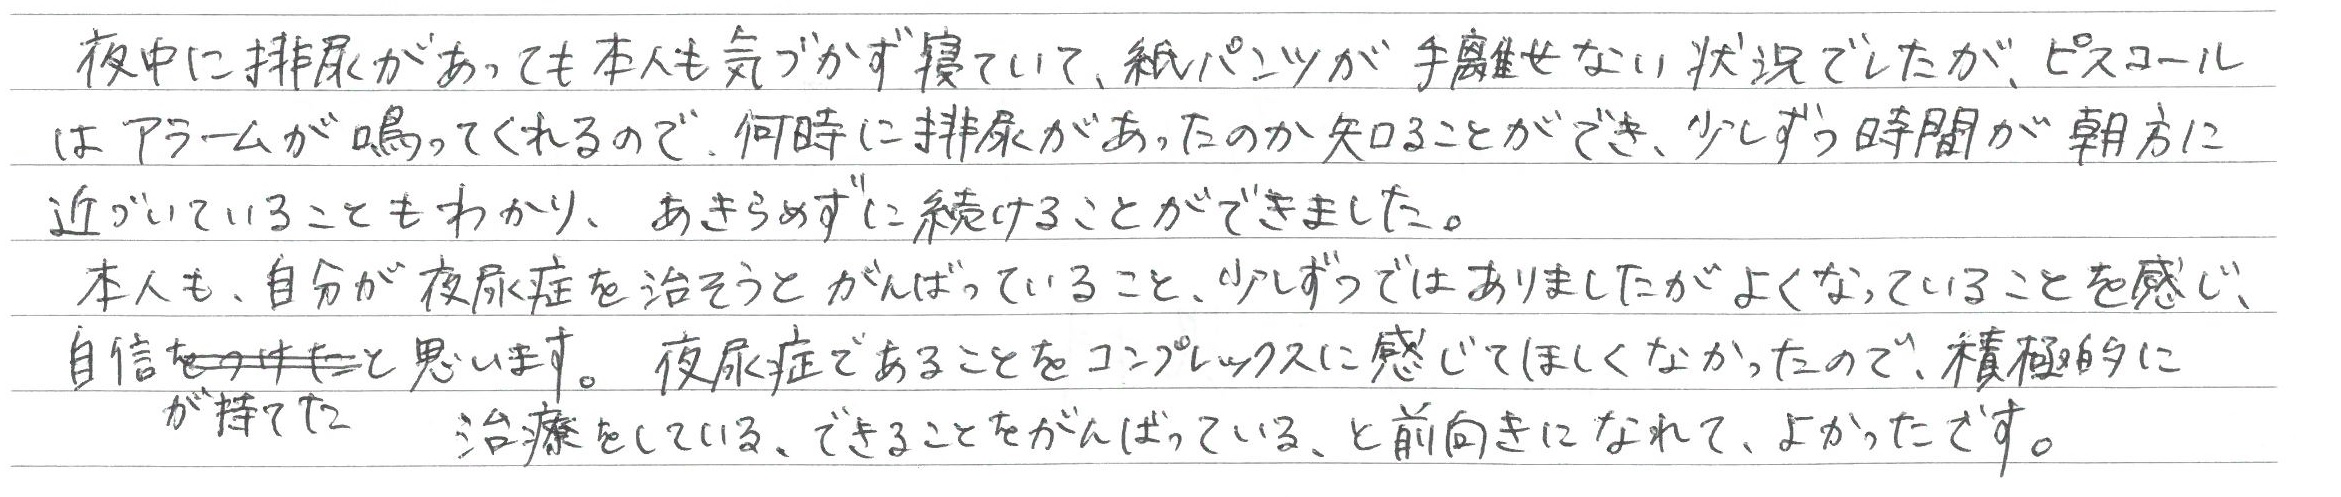 夜中に排尿があっても本人も気づかず寝ていて、紙パンツが手離せない状況でしたが、ピスコール
はアラームが鳴ってくれるので、何時に排尿があったのか知ることができ、少しずつ時間が朝方に
近づいていることもわかり、あきらめずに続けることができました。
本人も、自分が夜尿症を治そうとがんばっていること、少しずつではありましたがよくなっていることを感じ、
自信をつけたと思います。夜尿症であることをコンプレックスに感じてほしくなかったので、積極的に
が持てた
治療をしている、できることをがんばっている、と前向きになれて、よかったです。